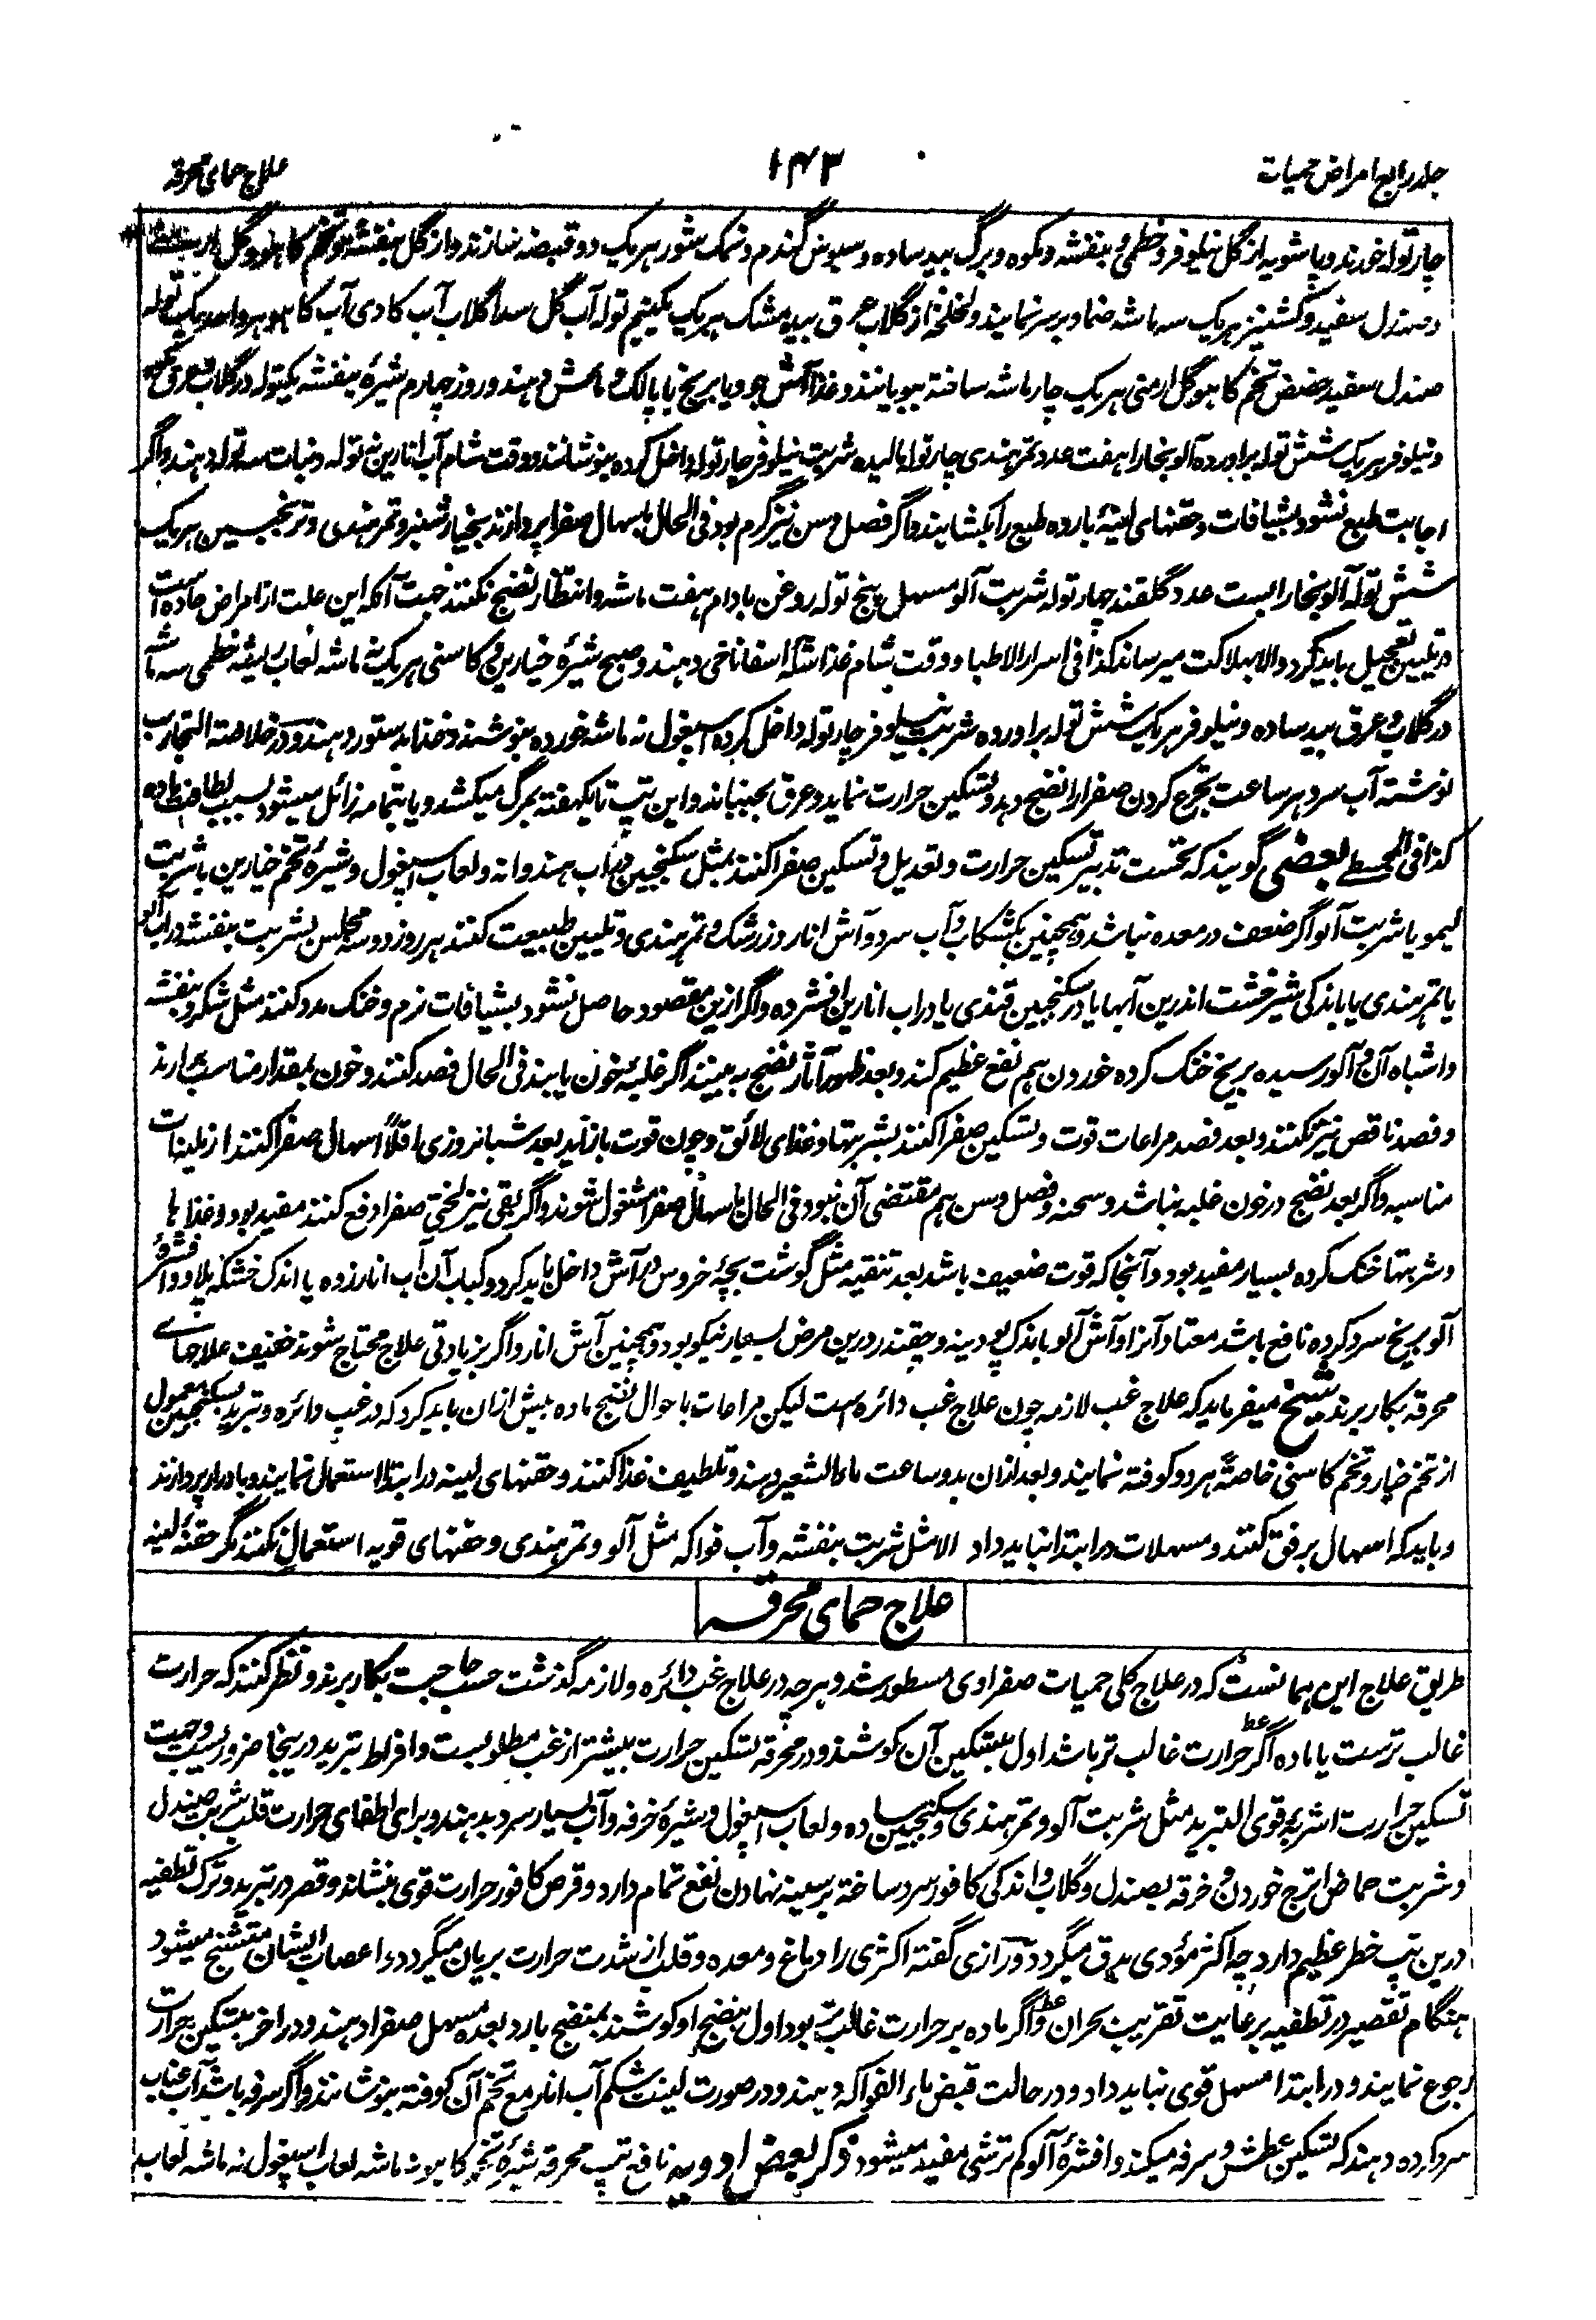 جلد رابع امراض حمیات
۱۴۳
علاج حمای محرقه
چار توله خورند و پاشویه از گل نیلوفر و خطمی و بنفشه و مکوه و برگ بید ساده و سبوس گندم و نمک شور هر یک دو قبضه سازند و از گل بنفشه و تخم کاهو و گل
و صندل سفید و کشنیز هر یک سه ماشه ضماد بر سر نمایند و لخلخه از گلاب عرق بید مشک هر یک یکنیم توله آب گل سدا گلاب آب کادی آب کاهو هر واحد یک توله
صندل سفید حضض تخم کاهو گل ارمنی هر یک چار ماشه ساخته ببویانند و غذا آش جو و یا برنج با پالک و ماش دهند و روز چهارم شیرهٔ بنفشه یکتوله در گلاب و عرق
و نیلوفر هر یک شش توله برآورده آلو بخارا هفت عدد تمر هندی چار توله مالیده شربت نیلوفر چار توله داخل کرده بنوشانند و وقت شام آب انارین نه توله و نبات سه توله دهند و اگر
اجابت طبع نشود بشیافات و حقنهای لینهٔ بارده طبع را بکشایند و اگر فصل و سن نیز گرم بود فی الحال باسهال صفرا پردازند بخیارشنبر و تمر هندی و ترنجبین هر یک
شش توله آلو بخارا بست عدد گلقند چهار توله شربت آلو مسهل پنج توله روغن بادام هفت ماشه و انتظار نضج نکنند جهت آنکه این علت از امراض حاده است
در تلیین تعجیل باید کرد و الا بهلاکت میرساند کذا فی اسرار الاطبا و وقت شام غذا خشکه اسفاناخی دهند و صبح شیرهٔ خیارین و کاسنی هر یک نه ماشه لعاب ریشه خطمی سه ماشه
در گلاب و عرق بید ساده و نیلوفر هر یک شش توله برآورده شربت نیلوفر چار توله داخل کرده اسپغول نه ماشه خورده بنوشند و غذا بدستور دهند و در خلاصة التجارب
نوشته آب سرد هر ساعت بتجرع کردن صفرا را نضج دهد و تسکین حرارت نماید و عرق بجنباند و این تپ تا یکهفته بمرگ میکشد و یا بتمامه زائل میشود بسبب لطافت ماده
کذا فی المحسطی بعضی گویند که نخست تدبیر تسکین حرارت و تعدیل و تسکین صفرا کنند بمثل سکنجبین و آب هندوانه و لعاب اسپغول و شیرهٔ تخم خیارین با شربت
لیمو یا شربت آلو اگر ضعف در معده نباشد و همچنین بکشکاب و آب سرد و آش انار و زرشک و تمر هندی و تلیین طبیعت کنند هر روز دو سه مجلس بشربت بنفشه در آب آلو
یا تمر هندی یا باندکی شیرخشت اندرین آبها یا در سکنجبین قندی یا در آب انارین افشرده و اگر ازین مقصود حاصل نشود بشیافات نرم و خنک مدد کنند مثل شکر و بنفشه
و اشباه آن و آلو رسیده بریخ خنک کرده خوردن هم نفع عظیم کند و بعد ظهور آثار نضج به بینند اگر غلبهٔ خون یابند فی الحال فصد کنند و خون بمقدار مناسب برآرند
و فصد ناقص نیز نکنند و بعد فصد مراعات قوت و تسکین صفرا کنند بشربتها و غذای لائق و چون قوت باز آید بعد شبانروزی اقلاً اسهال صفرا کنند از ملینات
مناسبه و اگر بعد نضج در خون غلبه نباشد و سحنه و فصل و سن هم مقتضی آن نبود فی الحال باسهال صفرا مشغول شوند و اگر بقی نیز لختی صفرا دفع کنند مفید بود و غذا ها
و شربتها خنک کرده بسیار مفید بود و آنجا که قوت ضعیف باشد بعد تنقیه مثل گوشت بچهٔ خروس در آش داخل باید کرد و کباب آن آب انار زده یا اندک خشکه پلاو و افشرهٔ
آلو بریخ سرد کرده نافع باشد معتاد آنرا و آش آلو باندک پودینه و چقندر درین مرض بسیار نیکو بود و همچنین آش انار و اگر بزیادتی علاج محتاج شوند خفیف علاجهای
محرقه بکار برند شیخ میفرماید که علاج غب لازمه چون علاج غب دائره است لیکن مراعات باحوال نضج ماده بیش ازان باید کرد که در غب دائره و تبرید بسکنجبین معمول
از تخم خیار و تخم کاسنی خاصةً هر دو کوفته نمایند و بعد ازان بدو ساعت ماءالشعیر دهند و تلطیف غذا کنند و حقنهای لینه در ابتدا استعمال نمایند و بادرار پردازند
و باید که اسهال برفق کنند و مسهلات در ابتدا نباید داد الا مثل شربت بنفشه و آب فواکه مثل آلو و تمر هندی و حقنهای قویه استعمال نکنند مگر حقنهٔ لینه
علاج حمای محرقه
طریق علاج این همانست که در علاج کلی حمیات صفراوی مسطور شد و هرچه در علاج غب دائره و لازمه گذشت حسب حاجت بکار برند و نظر کنند که حرارت
غالب ترست یا ماده اگر حرارت غالب تر باشد اول بتسکین آن کوشند و در محرقه تسکین حرارت بیشتر از غب مطلوبست و افراط تبرید درینجا ضروریست و جهت
تسکین حرارت اشربهٔ قوی التبرید مثل شربت آلو و تمر هندی و سکنجبین ساده و لعاب اسپغول و شیرهٔ خرفه و آب بسیار سرد بدهند و برای اطفای حرارت قلب شربت صندل
و شربت حماض اترج خوردن و خرقه بصندل و گلاب و اندکی کافور سرد ساخته بر سینه نهادن نفع تمام دارد و قرص کافور حرارت قوی بنشاند و قصر در تبرید و ترک تطفیه
درین تپ خطر عظیم دارد چه اکثر مؤدی بدق میگردد و رازی گفته اکثری را دماغ و معده و قلب از شدت حرارت بریان میگردد و اعصاب ایشان متشنج میشود
هنگام تقصیر در تطفیه برعایت تقریب بحران و اگر ماده بر حرارت غالب بود اول بنضج او کوشند بمنضج بارد بعده مسهل صفرا دهند و در آخر بتسکین حرارت
رجوع نمایند و در ابتدا مسهل قوی نباید داد و در حالت قبض ماء الفواکه دهند و در صورت لینت شکم آب انار مع تخم آن کوفته بنوشانند و اگر سرفه باشد آب عناب
سرد کرده دهند که تسکین عطش و سرفه میکند و افشرهٔ آلو کم ترشی مفید میشود ذکر بعض ادویه نافع تپ محرقه شیرهٔ تخم کاهو نه ماشه لعاب اسپغول نه ماشه لعاب